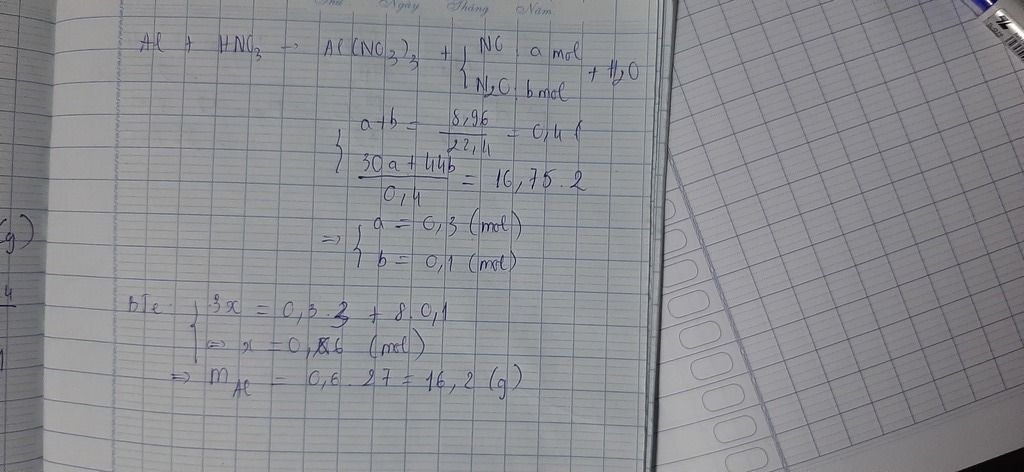 Thứ Ngày Tháng Năm
Al + HNO₃ → Al(NO₃)₃ + { NO a mol
N₂O b mol + H₂O
{ a+b = 8,96/22,4 = 0,4
(30a + 44b)/0,4 = 16,75.2
⇒ { a = 0,3 (mol)
b = 0,1 (mol)
BTe { 3x = 0,3.3 + 8.0,1
⇔ x = 0,6 (mol)
⇒ mAl = 0,6.27 = 16,2 (g)
g)
4